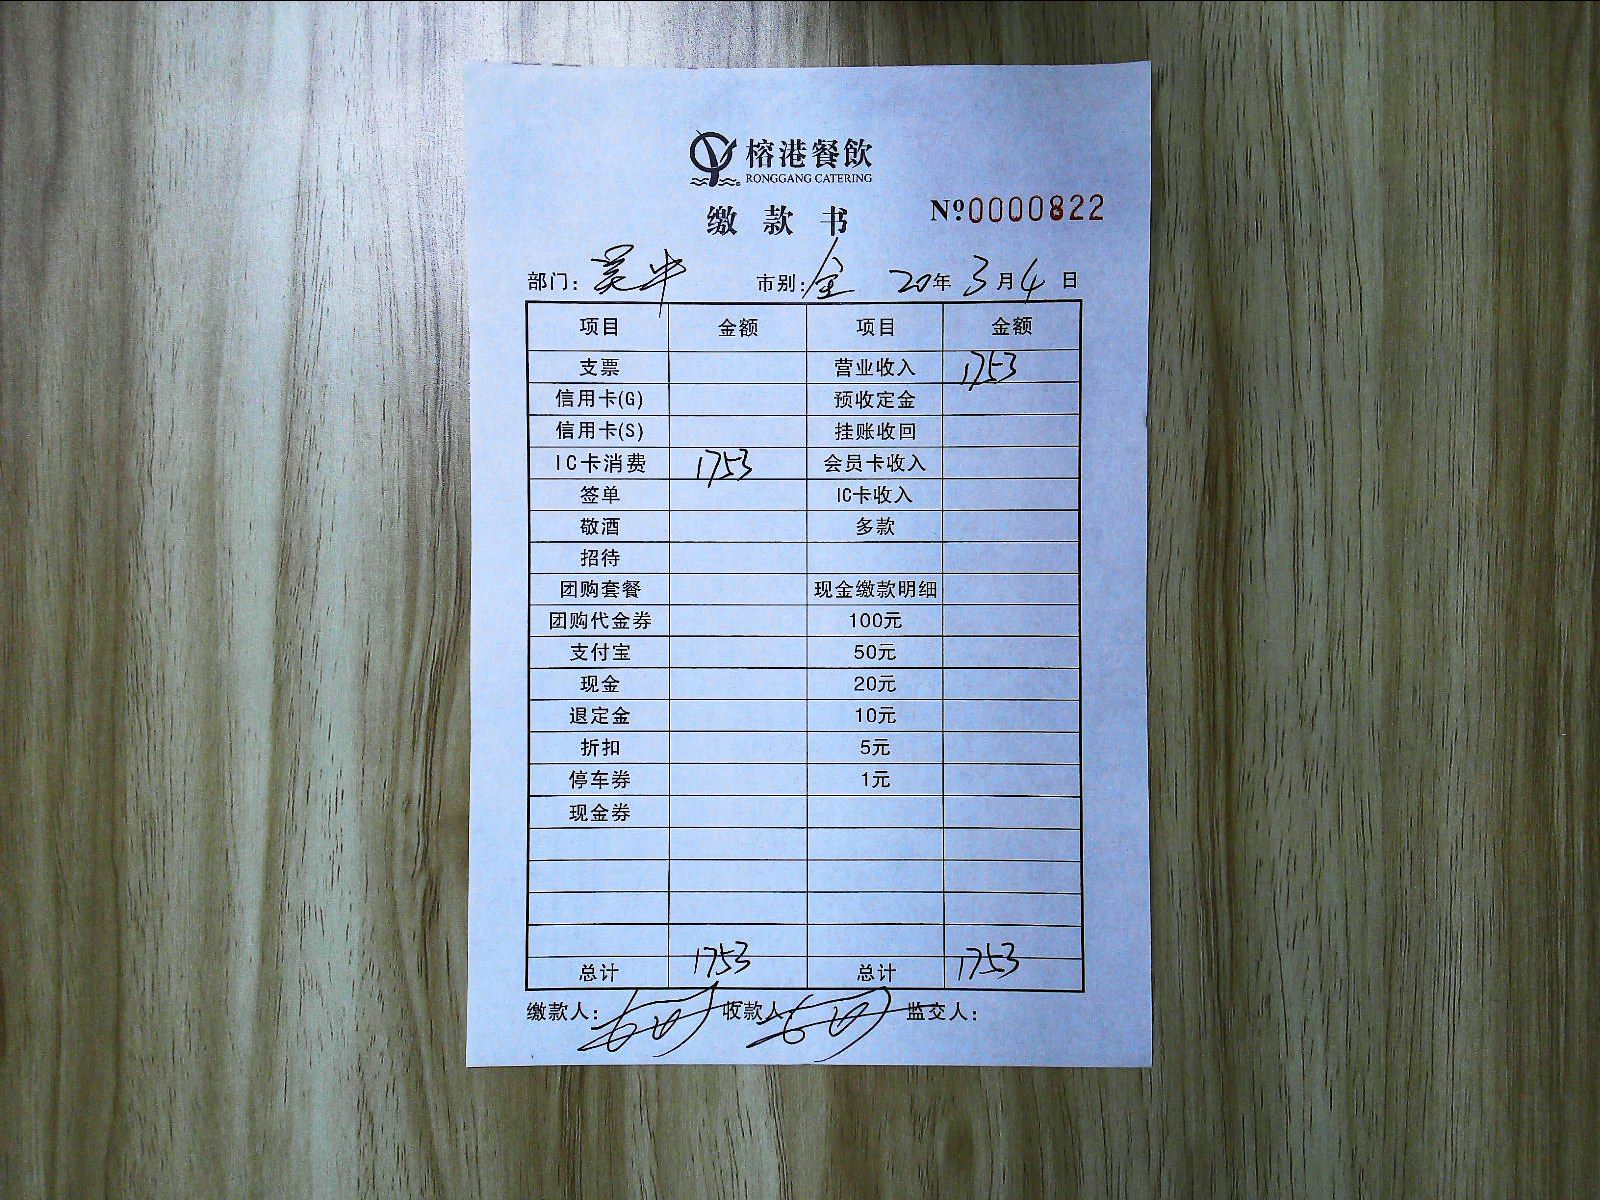 榕港餐飲
RONGGANG CATERING
缴款书 №0000822
部门： 市别：全 20年3月4日
项目 金额 项目 金额
支票 营业收入 1753
信用卡(G) 预收定金
信用卡(S) 挂账收回
IC卡消费 1753 会员卡收入
签单 IC卡收入
敬酒 多款
招待
团购套餐 现金缴款明细
团购代金券 100元
支付宝 50元
现金 20元
退定金 10元
折扣 5元
停车券 1元
现金券
总计 1753 总计 1753
缴款人： 收款人： 监交人：